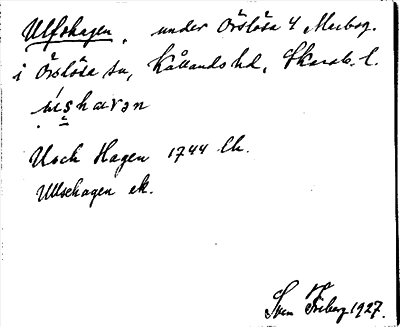 Ulfshagen, under Örslösa 4 Merbog.
i Örslösa sn, Kållands hd, Skarab. l.
Hagen 1744 lk.
Ullschagen ek.
Sven Friberg 1927.